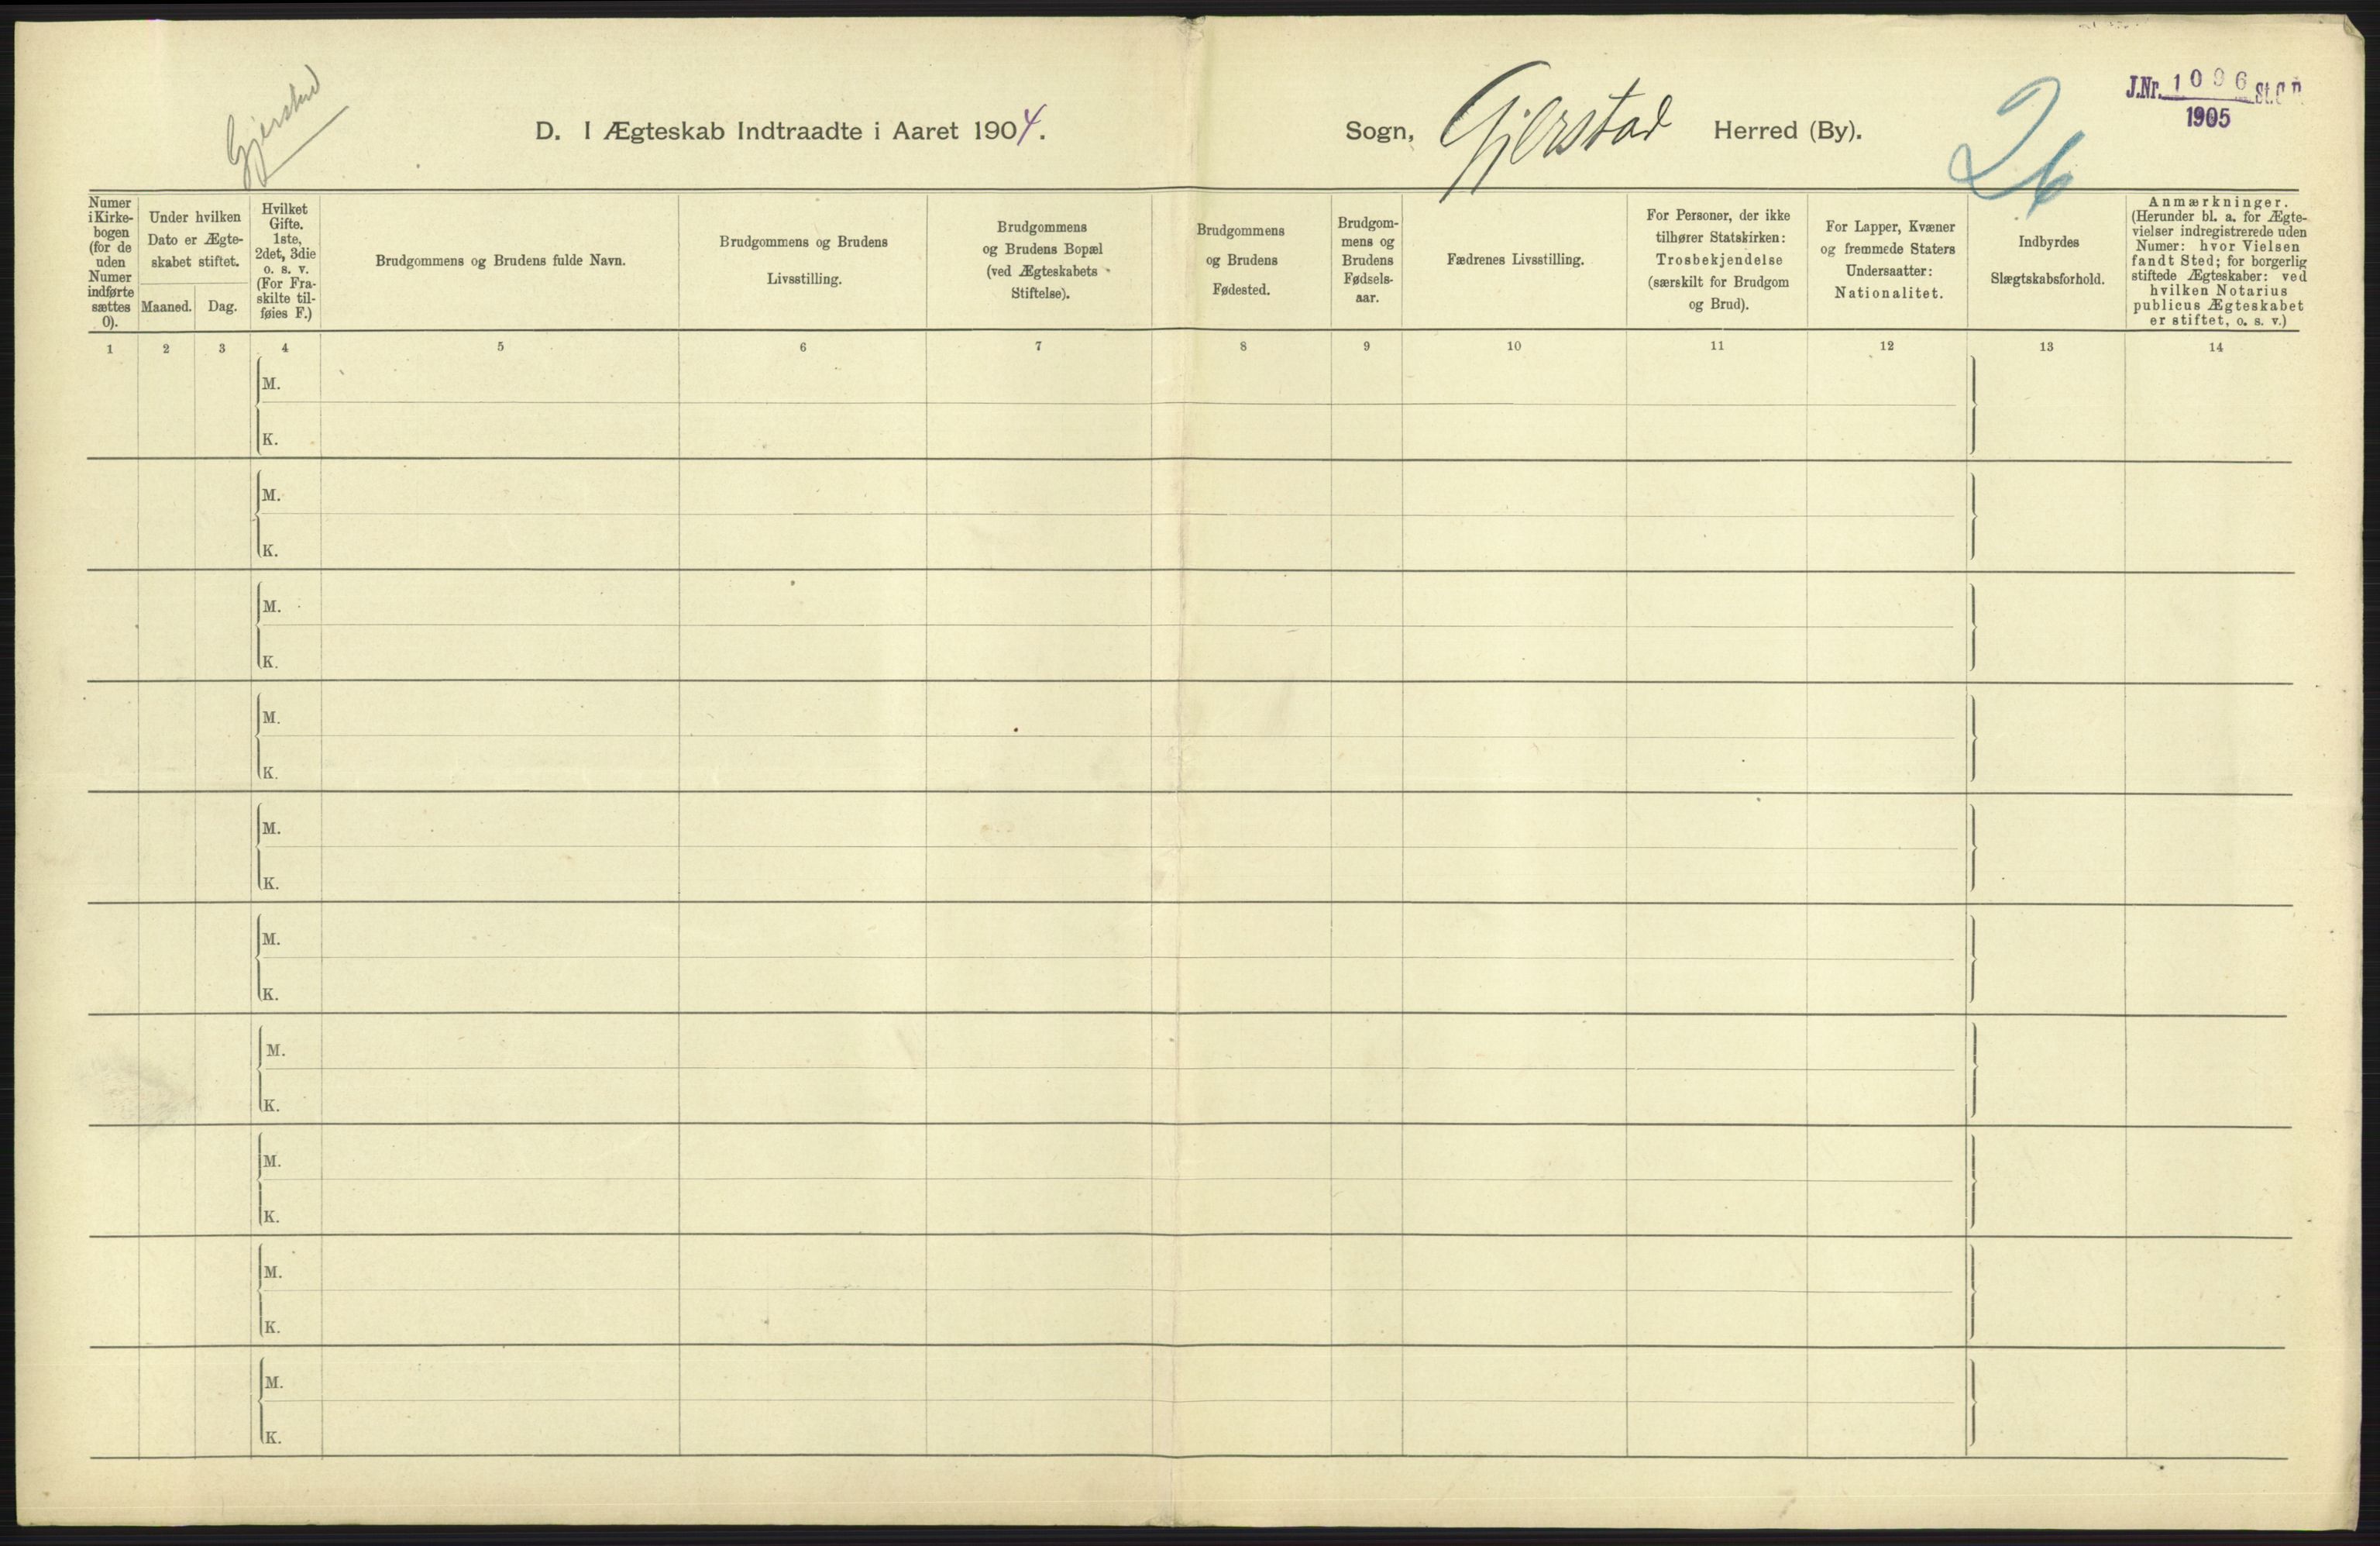 Gjerstad
D. I Ægteskab Indtraadte i Aaret 1904.
Sogn, Gjerstad Herred (By).
26
J.Nr. 1096
1905
Numer i Kirke-bogen (for de uden Numer indførte sættes 0).
Under hvilken Dato er Ægte-skabet stiftet.
Maaned.
Dag.
Hvilket Gifte. 1ste, 2det, 3die o. s. v. (For Fra-skilte til-føies F.)
Brudgommens og Brudens fulde Navn.
Brudgommens og Brudens Livsstilling.
Brudgommens og Brudens Bopæl (ved Ægteskabets Stiftelse).
Brudgommens og Brudens Fødested.
Brudgom-mens og Brudens Fødsels-aar.
Fædrenes Livsstilling.
For Personer, der ikke tilhører Statskirken: Trosbekjendelse (særskilt for Brudgom og Brud).
For Lapper, Kvæner og fremmede Staters Undersaatter: Nationalitet.
Indbyrdes Slægtskabsforhold.
Anmærkninger. (Herunder bl. a. for Ægte-vielser indregistrerede uden Numer: hvor Vielsen fandt Sted; for borgerlig stiftede Ægteskaber: ved hvilken Notarius publicus Ægteskabet er stiftet, o. s. v.)
1 2 3 4 5 6 7 8 9 10 11 12 13 14
M.
K.
M.
K.
M.
K.
M.
K.
M.
K.
M.
K.
M.
K.
M.
K.
M.
K.
M.
K.